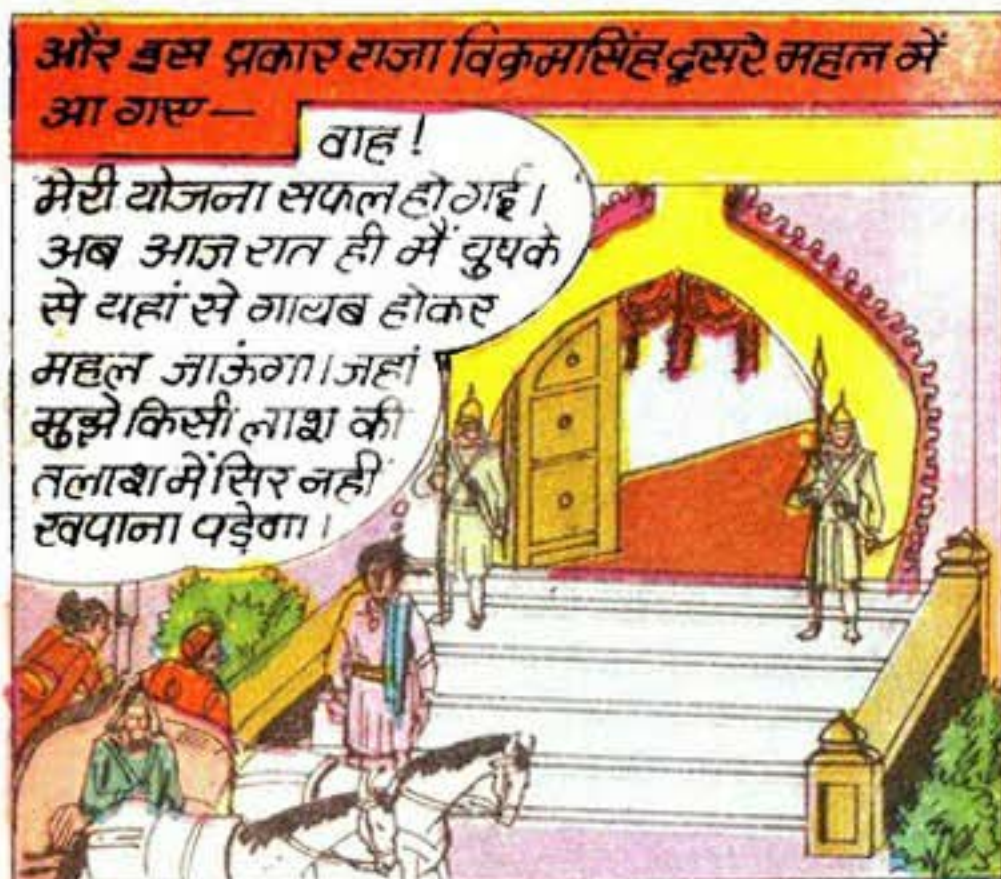 और इस प्रकार राजा विक्रमसिंह दूसरे महल में
आ गए —
वाह!
मेरी योजना सफल हो गई।
अब आज रात ही मैं चुपके
से यहां से गायब होकर
महल जाऊंगा। जहां
मुझे किसी लाश की
तलाश में सिर नहीं
खपाना पड़ेगा।